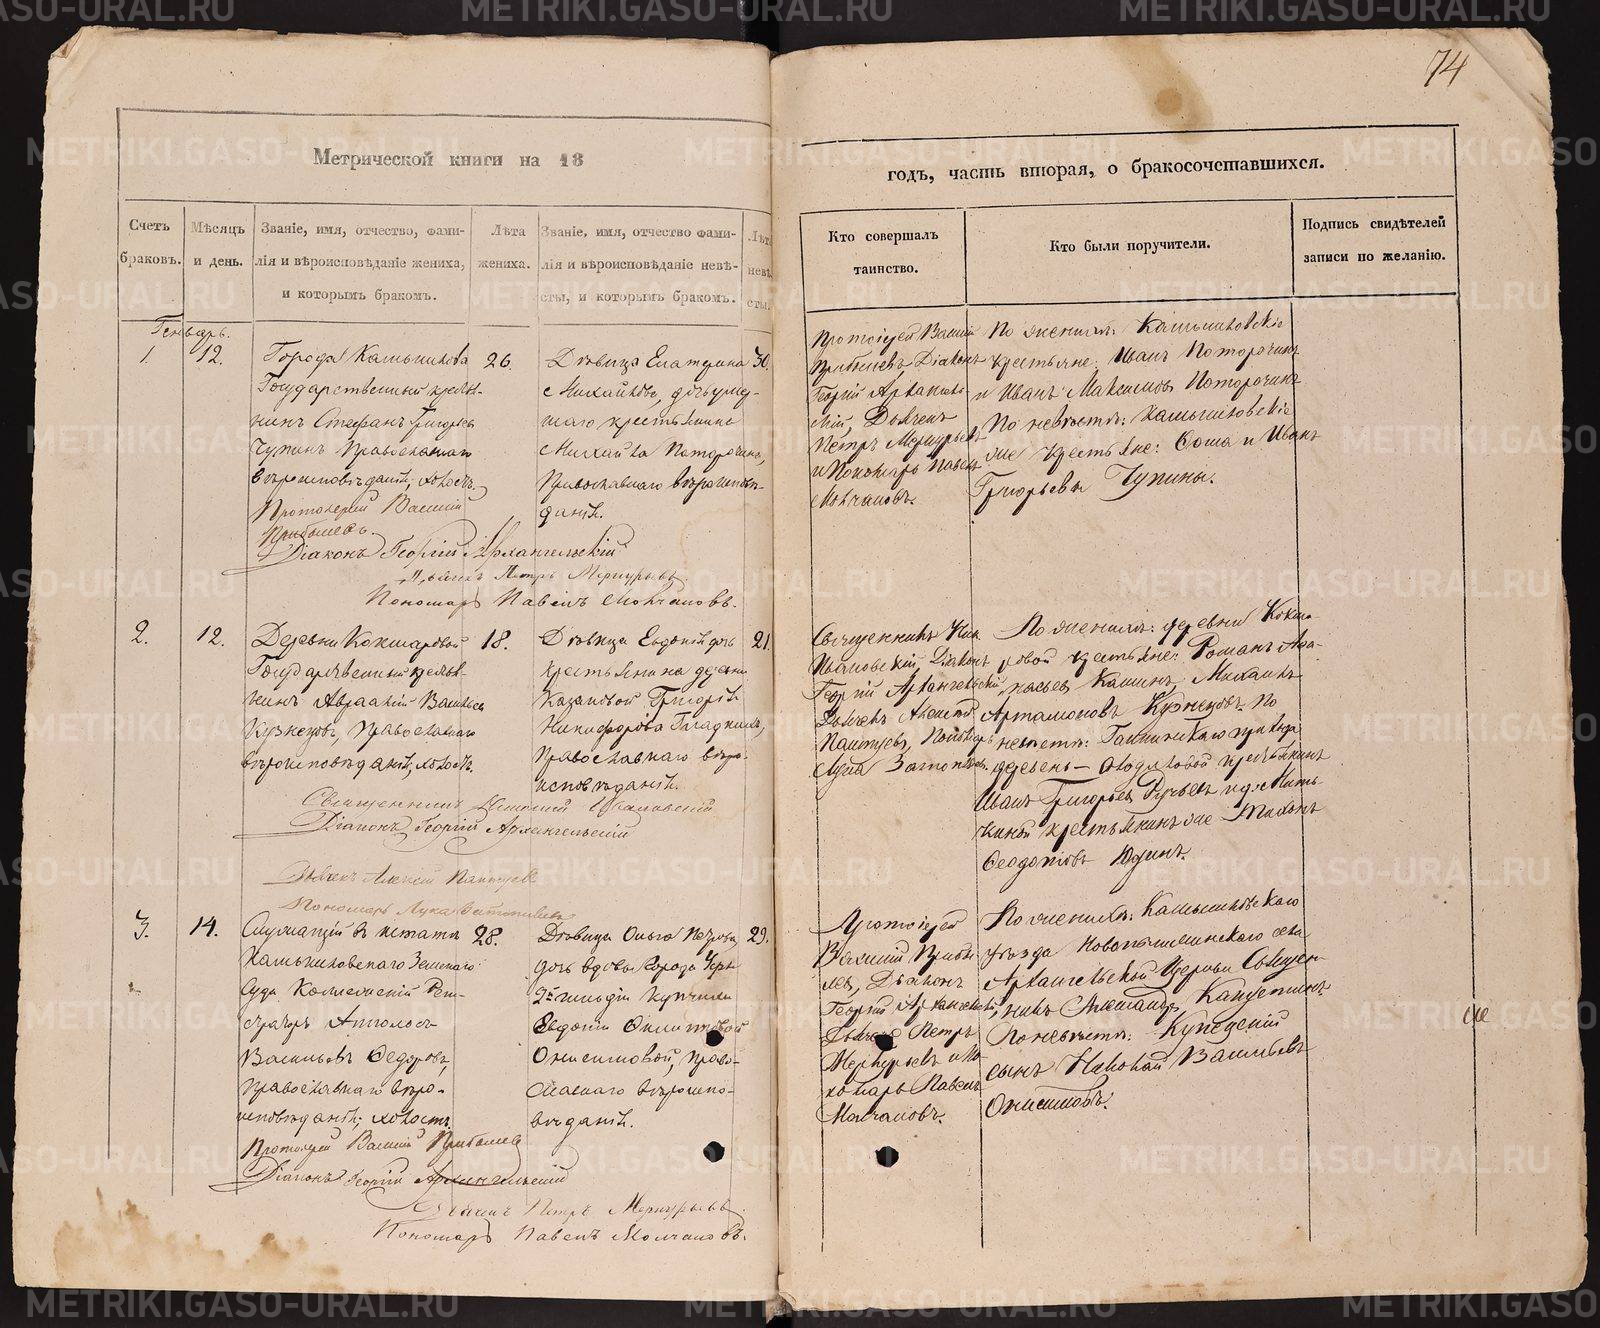 74
Метрической книги на 18
годъ, часть вторая, о бракосочетавшихся.
Счетъ браковъ.
Мѣсяцъ и день.
Званіе, имя, отчество, фами-
лія и вѣроисповѣданіе жениха,
и которымъ бракомъ.
Лѣта
жениха.
Званіе, имя, отчество фами-
лія и вѣроисповѣданіе невѣ-
сты, и которымъ бракомъ.
Лѣта
невѣ
сты.
Кто совершалъ
таинство.
Кто были поручители.
Подпись свидѣтелей
записи по желанію.
Генварь.
1.
12.
Города Камышлова
Государственный крестья-
нинъ Стефанъ Григорьевъ
Чупинъ Православнаго
вѣроисповѣданія, холостъ.
26.
Дѣвица Екатерина
Михайлова, дочь умер-
шаго крестьянина
Михаила Поторочина,
Православнаго вѣроисповѣ-
данія.
Протоіерей Василій
Діаконъ
Георгій Архангель-
скій, Дьячекъ
Петръ Меркурьевъ
и Пономарь Павелъ
Молчановъ.
По женихѣ: Камышловскіе
крестьяне: Иванъ Поторочинъ
и Иванъ Максимовъ Поторочинъ
По невѣстѣ: Камышловскіе
же крестьяне: Ѳома и Иванъ
Григорьевы Чупины.
Протоіерей Василій
Діаконъ Георгій Архангельскій
Дьячекъ Петръ Меркурьевъ
Пономарь Павелъ Молчановъ.
2.
12.
Деревни Кокшаровой
Государственный крестья-
нинъ Авраамій Васильевъ
Кузнецовъ, Православнаго
вѣроисповѣданія, холостъ.
18.
Дѣвица Евдокія дочь
крестьянина деревни
Казаковой Григорія
Никифорова Гладкихъ,
Православнаго вѣро-
исповѣданія.
21.
Священникъ
Ивановскій, Діаконъ
Георгій Архангельскій
Дьячекъ Алексѣй
Пономарь
Лука
По женихѣ: деревни Кокша-
ровой крестьяне: Романъ
Михаилъ
Артамоновъ Кузнецовъ. По
невѣстѣ:
деревень
крестьянинъ
Иванъ Григорьевъ
крестьянинъ же
Ѳедотовъ Юдинъ.
Священникъ Ивановскій
Діаконъ Георгій Архангельскій
Дьячекъ Алексѣй
Пономарь Лука
3.
14.
Служащій въ штатѣ
Камышловскаго Земскаго
Суда Коллежскій Реги-
страторъ Апполосъ
Васильевъ Ѳедоровъ,
Православнаго вѣро-
исповѣданія, холостъ.
28.
Дѣвица Ольга Петрова,
дочь вдовы города
2й гильдіи купчихи
Евдокіи
Онисимовой, Право-
славнаго вѣроиспо-
вѣданія.
29.
Протоіерей
Василій
Діаконъ
Георгій Архангельскій,
Дьячекъ Петръ
Меркурьевъ и По-
номарь Павелъ
Молчановъ.
По женихѣ: Камышловскаго
уѣзда Новопышминскаго села
Архангельской Церкви Священ-
никъ Александръ
По невѣстѣ: Купеческій
сынъ Николай Васильевъ
Онисимовъ.
Протоіерей Василій
Діаконъ Георгій Архангельскій
Дьячекъ Петръ Меркурьевъ
Пономарь Павелъ Молчановъ.
METRIKI.GASO-URAL.RU